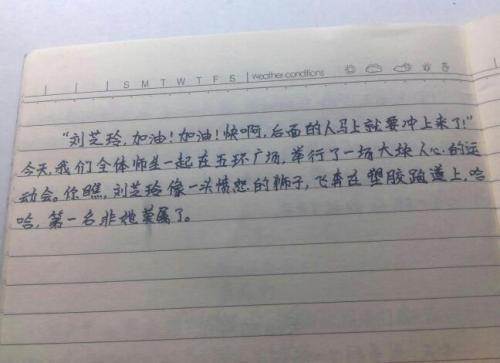 S M T W T F S Weather conditions
“刘芝玲,加油!加油!快啊,后面的人马上就要冲上来了!”
今天,我们全体师生一起在五环广场,举行了一场大快人心的运
动会。你瞧,刘芝玲像一头愤怒的狮子,飞奔在塑胶跑道上,哈
哈,第一名非她莫属了。